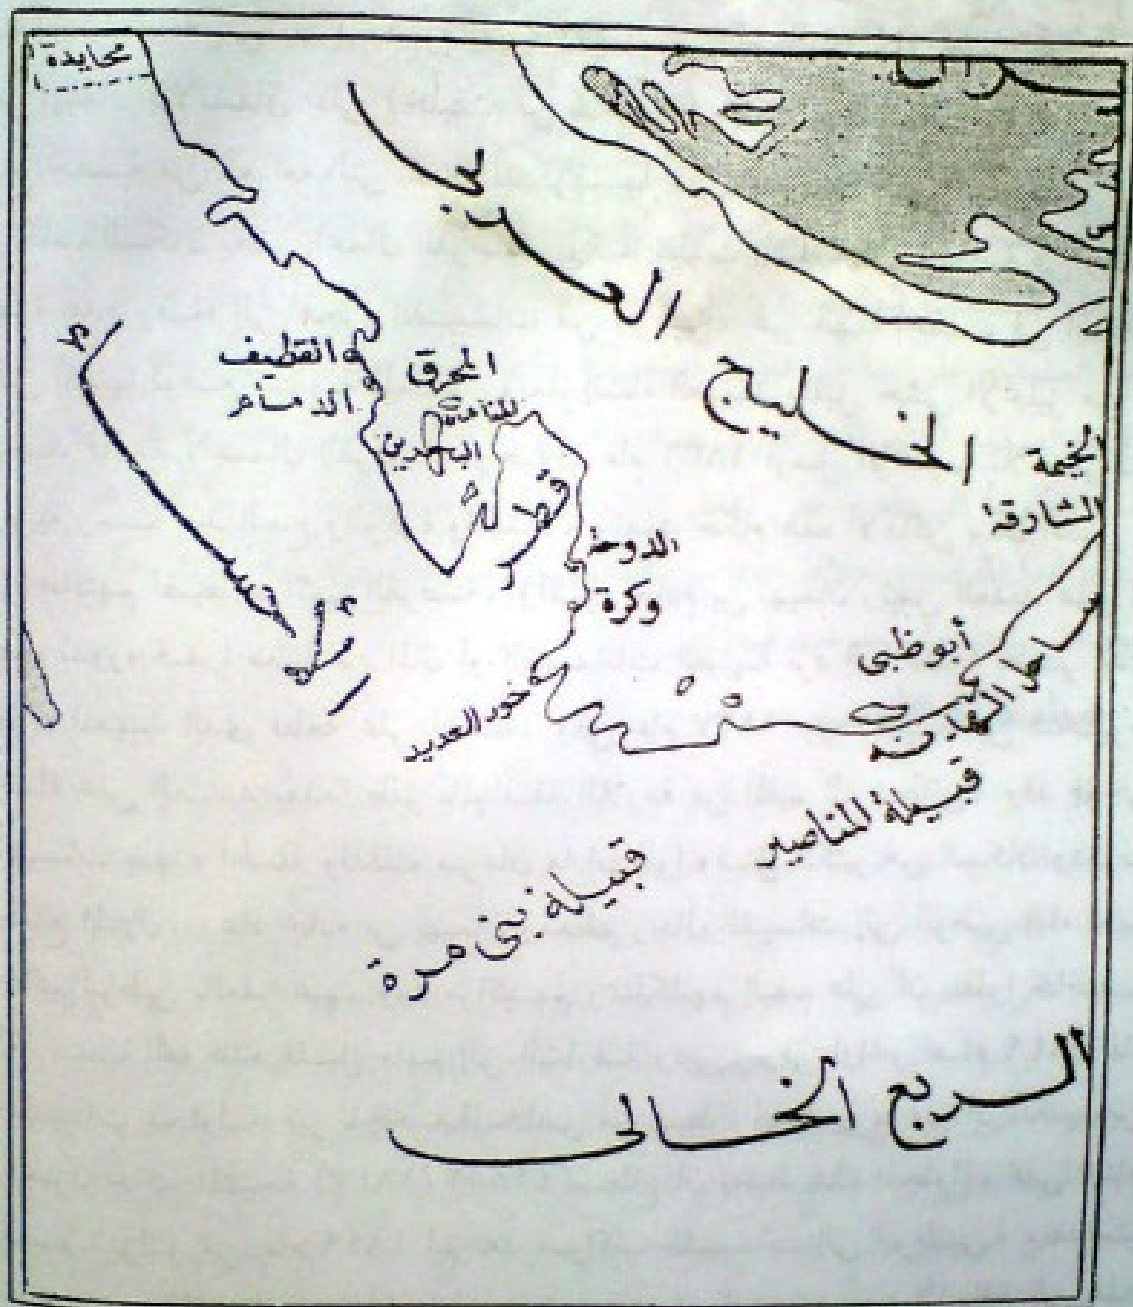 محايدة
الخليج العربي
القطيف
الدمام
المحرق
المنامة
البحرين
قطر
الدوحة
وكرة
الخيمة
الشارقة
أبوظبى
ساحل
خور العديد
قبيلة المناصير
قبيلة بنى مرة
الربع الخالى